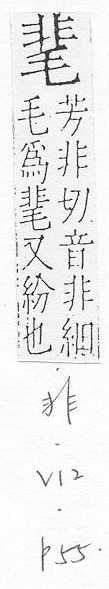 ⿱非毛
芳非切音非細
毛爲⿱非毛又紛也
·
非
·
V12
·
p55.